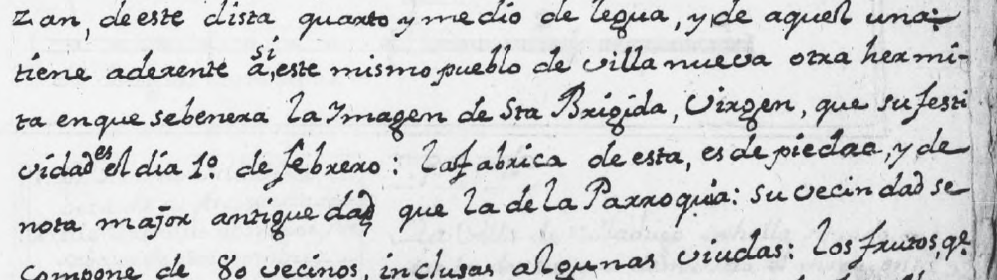 zan, de este dista quarto y medio de legua, y de aquel una:
tiene aderente a si, este mismo pueblo de villa nueva otra hermi-
ta en que se benera la Ymagen de Sta Brigida, Virgen, que su festi
vidad es el dia 1º. de febrero: la fabrica de esta, es de piedra, y de
nota major antiguedad que la de la Parroquia: su vecindad se
compone de 80 vecinos, inclusas algunas viudas: los frutos, qe